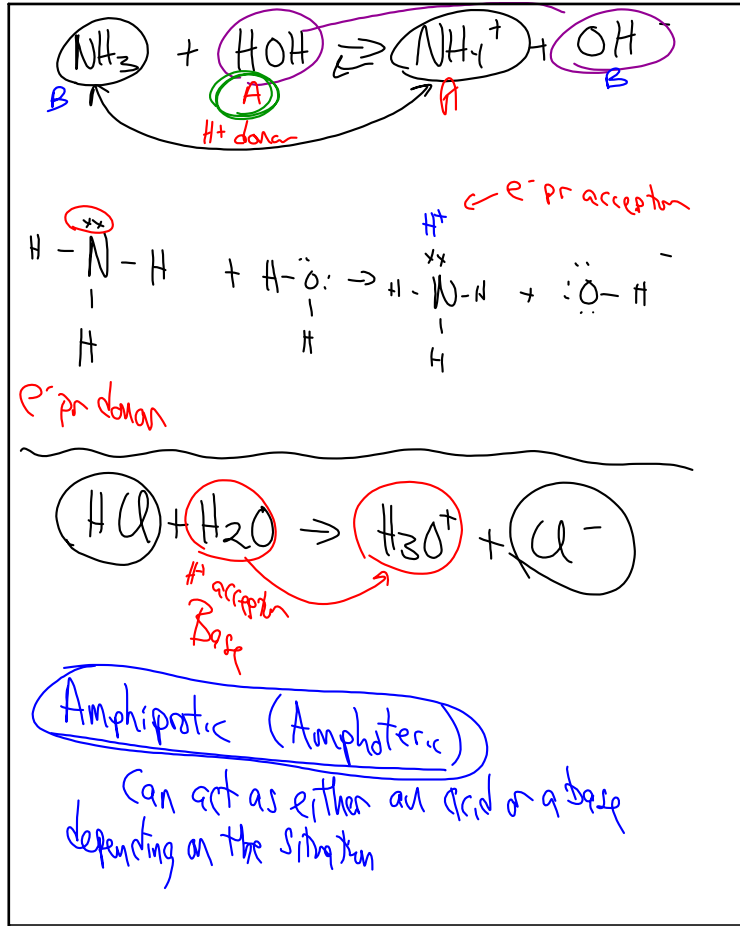 NH₃ + HOH ⇌ NH₄⁺ + OH⁻
B A A B
H+ donor
H⁺ ← e⁻ pr acceptor
H - N - H + H - O: → H - N - H + :O - H ⁻
H H H
e⁻ pr donor
HCl + H₂O → H₃O⁺ + Cl⁻
H⁺ acceptor
Base
Amphiprotic (Amphoteric)
Can act as either an acid or a base
depending on the situation